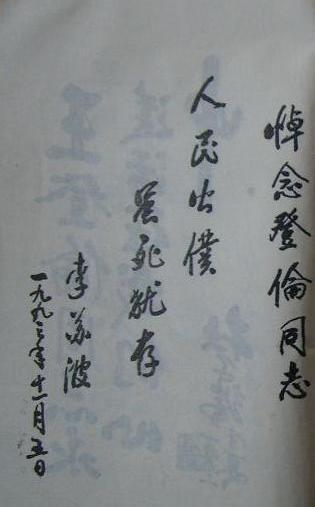 悼念登倫同志
人民公僕
虽死犹存
李苏波
一九九二年十一月五日